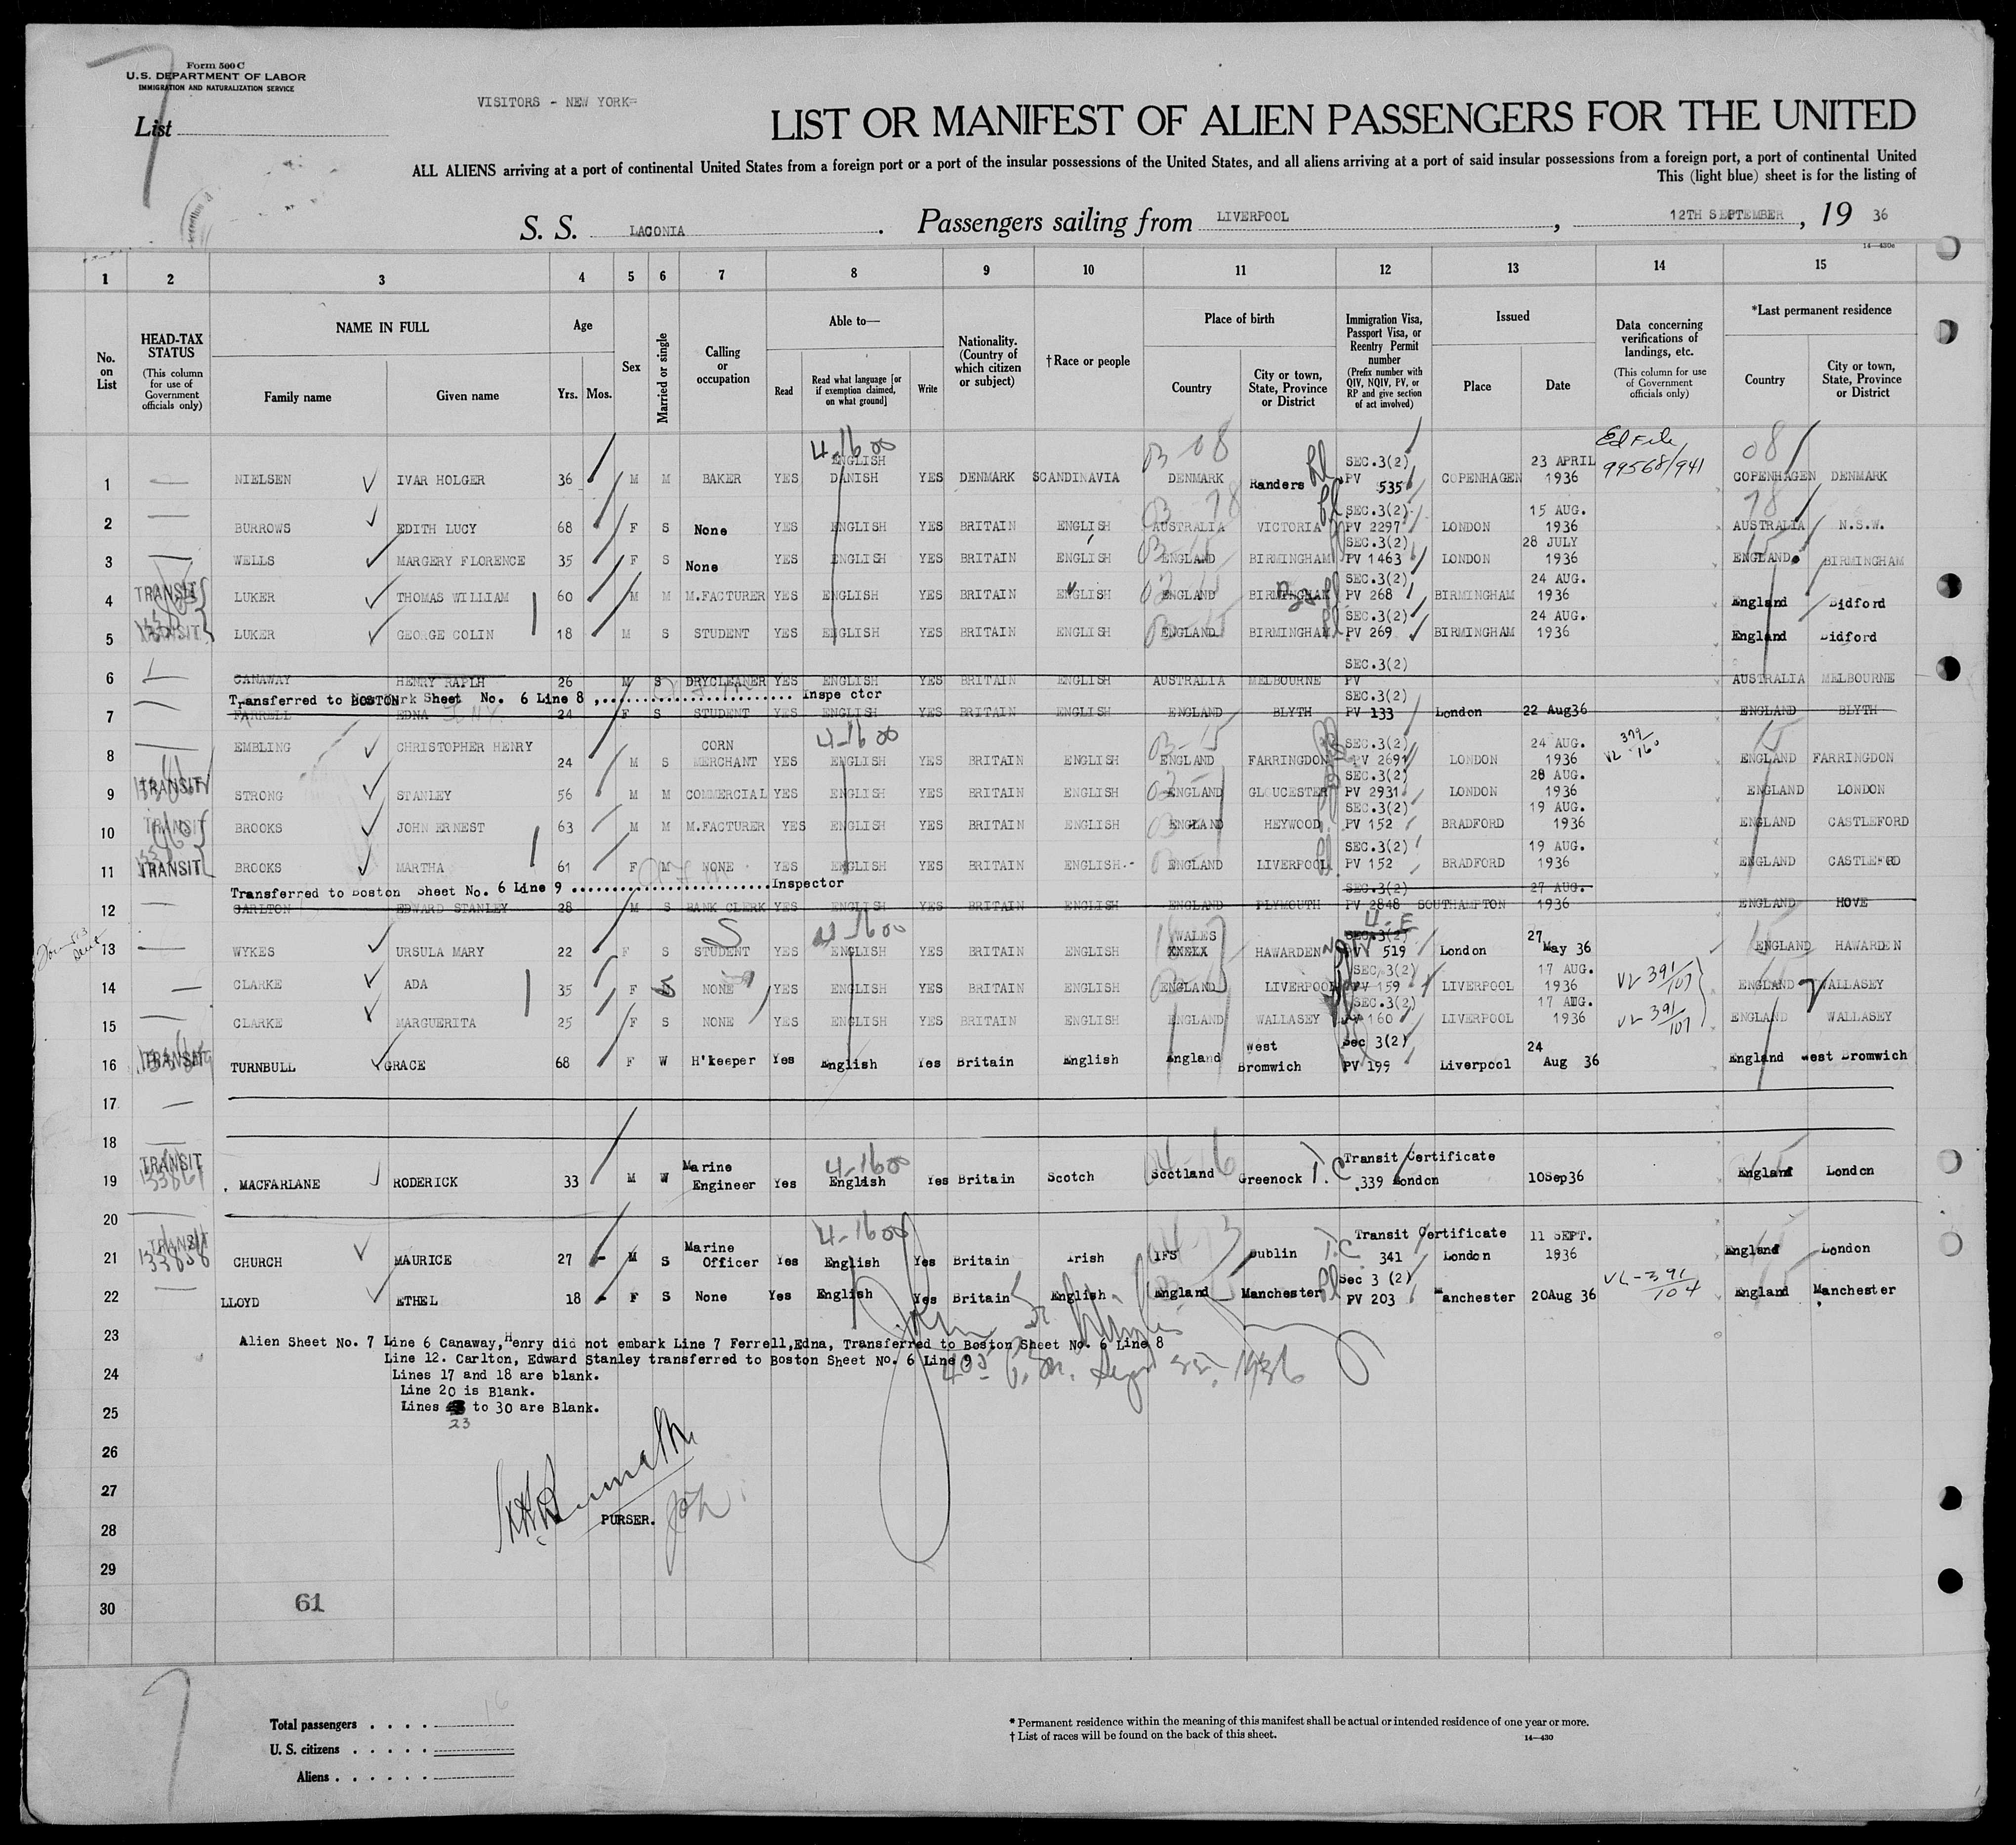 Form 500 C
U. S. DEPARTMENT OF LABOR
IMMIGRATION AND NATURALIZATION SERVICE
VISITORS - NEW YORK=
List
7
LIST OR MANIFEST OF ALIEN PASSENGERS FOR THE UNITED
ALL ALIENS arriving at a port of continental United States from a foreign port or a port of the insular possessions of the United States, and all aliens arriving at a port of said insular possessions from a foreign port, a port of continental United
This (light blue) sheet is for the listing of
S. S. LACONIA . Passengers sailing from LIVERPOOL , 12TH SEPTEMBER , 19 36
14—430c
1 2 3 4 5 6 7 8 9 10 11 12 13 14 15
No. on List
HEAD-TAX STATUS (This column for use of Government officials only)
NAME IN FULL Family name Given name
Age Yrs. Mos.
Sex
Married or single
Calling or occupation
Able to— Read Read what language [or if exemption claimed, on what ground] Write
Nationality. (Country of which citizen or subject)
† Race or people
Place of birth Country City or town, State, Province or District
Immigration Visa, Passport Visa, or Reentry Permit number (Prefix number with QIV, NQIV, PV, or RP and give section of act involved)
Issued Place Date
Data concerning verifications of landings, etc. (This column for use of Government officials only)
*Last permanent residence Country City or town, State, Province or District
4-1600 03-08 Ed File 08
1 NIELSEN IVAR HOLGER 36 M M BAKER YES ENGLISH DANISH YES DENMARK SCANDINAVIA DENMARK Randers SEC.3(2) PV 535 COPENHAGEN 23 APRIL 1936 99568/941 COPENHAGEN DENMARK
2 BURROWS EDITH LUCY 68 F S None YES ENGLISH YES BRITAIN ENGLISH AUSTRALIA VICTORIA SEC.3(2) PV 2297 LONDON 15 AUG. 1936 AUSTRALIA N.S.W.
3 WELLS MARGERY FLORENCE 35 F S None YES ENGLISH YES BRITAIN ENGLISH ENGLAND BIRMINGHAM SEC.3(2) PV 1463 LONDON 28 JULY 1936 ENGLAND BIRMINGHAM
4 TRANSIT LUKER THOMAS WILLIAM 60 M M M.FACTURER YES ENGLISH YES BRITAIN ENGLISH ENGLAND BIRMINGHAM SEC.3(2) PV 268 BIRMINGHAM 24 AUG. 1936 England Bidford
5 TRANSIT LUKER GEORGE COLIN 18 M S STUDENT YES ENGLISH YES BRITAIN ENGLISH ENGLAND BIRMINGHAM SEC.3(2) PV 269 BIRMINGHAM 24 AUG. 1936 England Bidford
6 CANAWAY HENRY RAPLH 26 M S DRYCLEANER YES ENGLISH YES BRITAIN ENGLISH AUSTRALIA MELBOURNE SEC.3(2) PV AUSTRALIA MELBOURNE
Transferred to BOSTON Sheet No. 6 Line 8 ,........................ Inspe ctor
7 FARRELL EDNA 24 F S STUDENT YES ENGLISH YES BRITAIN ENGLISH ENGLAND BLYTH SEC.3(2) PV 133 London 22 Aug36 ENGLAND BLYTH
4-1600 03-15
8 EMBLING CHRISTOPHER HENRY 24 M S CORN MERCHANT YES ENGLISH YES BRITAIN ENGLISH ENGLAND FARRINGDON SEC.3(2) PV 2691 LONDON 24 AUG. 1936 VL 379/160 ENGLAND FARRINGDON
9 TRANSIT STRONG STANLEY 56 M M COMMERCIAL YES ENGLISH YES BRITAIN ENGLISH ENGLAND GLOUCESTER SEC.3(2) PV 2931 LONDON 28 AUG. 1936 ENGLAND LONDON
10 TRANSIT BROOKS JOHN ERNEST 63 M M M.FACTURER YES ENGLISH YES BRITAIN ENGLISH ENGLAND HEYWOOD SEC.3(2) PV 152 BRADFORD 19 AUG. 1936 ENGLAND CASTLEFORD
11 TRANSIT BROOKS MARTHA 61 F M NONE YES ENGLISH YES BRITAIN ENGLISH ENGLAND LIVERPOOL SEC.3(2) PV 152 BRADFORD 19 AUG. 1936 ENGLAND CASTLEFRD
Transferred to Boston Sheet No. 6 Line 9 ........................Inspector
12 CARLTON EDWARD STANLEY 28 M S BANK CLERK YES ENGLISH YES BRITAIN ENGLISH ENGLAND PLYMOUTH SEC.3(2) PV 2848 SOUTHAMPTON 27 AUG. 1936 ENGLAND HOVE
S 4-1600 4-E
13 WYKES URSULA MARY 22 F S STUDENT YES ENGLISH YES BRITAIN ENGLISH WALES HAWARDEN SEC.3(2) 519 London 27 May 36 ENGLAND HAWARDEN
14 CLARKE ADA 35 F S NONE YES ENGLISH YES BRITAIN ENGLISH ENGLAND LIVERPOOL SEC.3(2) PV 159 LIVERPOOL 17 AUG. 1936 VL 391/107 ENGLAND WALLASEY
15 CLARKE MARGUERITA 25 F S NONE YES ENGLISH YES BRITAIN ENGLISH ENGLAND WALLASEY SEC.3(2) PV 160 LIVERPOOL 17 AUG. 1936 VL 391/107 ENGLAND WALLASEY
16 TRANSIT TURNBULL GRACE 68 F W H'keeper Yes English Yes Britain English England West Bromwich Sec 3(2) PV 199 Liverpool 24 Aug 36 England West Bromwich
17
18
4-1600
19 TRANSIT MACFARLANE RODERICK 33 M W Marine Engineer Yes English Yes Britain Scotch Scotland Greenock T.C Transit Certificate 339 London 10Sep36 England London
20
4-1600
21 TRANSIT 133858 CHURCH MAURICE 27 - M S Marine Officer Yes English Yes Britain Irish IFS Dublin T.C Transit Certificate 341 London 11 SEPT. 1936 England London
22 LLOYD ETHEL 18 - F S None Yes English Yes Britain English England Manchester Sec 3 (2) PV 203 Manchester 20Aug 36 VL-391/104 England Manchester
23 Alien Sheet No. 7 Line 6 Canaway, Henry did not embark Line 7 Ferrell,Edna, Transferred to Boston Sheet No. 6 Line 8
Line 12. Carlton, Edward Stanley transferred to Boston Sheet No. 6 Line 9
24 Lines 17 and 18 are blank.
Line 20 is Blank.
25 Lines to 30 are Blank.
23
26
27
28 PURSER.
29
30 61
7
Total passengers . . . . 16
U. S. citizens . . . . .
Aliens . . . . . .
* Permanent residence within the meaning of this manifest shall be actual or intended residence of one year or more.
† List of races will be found on the back of this sheet.
14—430